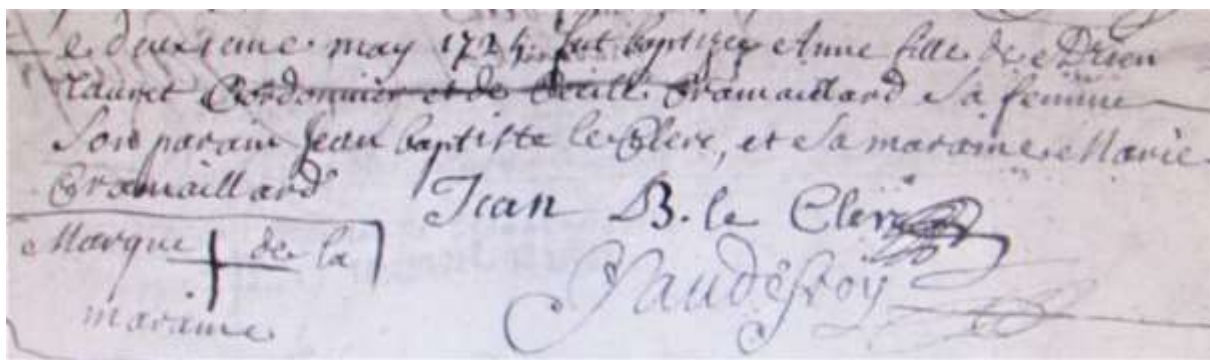 Le deuxieme may 1724 fut baptizee Anne fille de Drien
Tauret Cordonnier et de Cecille Cramaillard Sa femme
Son parain Jean baptiste le Clerc, et Sa maraine Marie
Cramaillard
Jean B. le Clerc
Marque de la
maraine
Vaudefroy